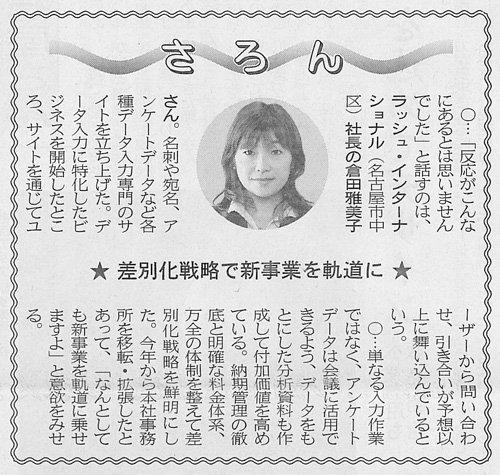 さろん
○…「反応がこんな
にあるとは思いません
でした」と話すのは、
ラッシュ・インターナ
ショナル（名古屋市中
区）社長の倉田雅美子
さん。名刺や宛名、ア
ンケートデータなど各
種データ入力専門のサ
イトを立ち上げた。デ
ータ入力に特化したビ
ジネスを開始したとこ
ろ、サイトを通じてユ
★ 差別化戦略で新事業を軌道に ★
ーザーから問い合わ
せ、引き合いが予想以
上に舞い込んでいると
いう。
○…単なる入力作業
ではなく、アンケート
データは会議に活用で
きるよう、データをも
とにした分析資料も作
成して付加価値を高め
ている。納期管理の徹
底と明確な料金体系、
万全の体制を整えて差
別化戦略を鮮明にし
た。今年から本社事務
所を移転・拡張したと
あって、「なんとして
も新事業を軌道に乗せ
ますよ」と意欲をみせ
る。